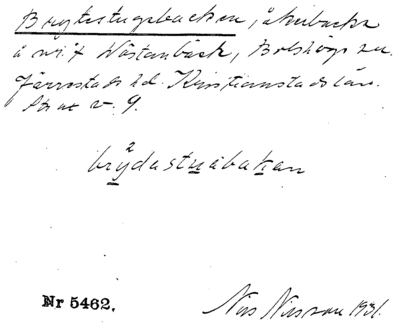 Brytestugebacken, åkerbacke
å nr. 7 Västanbäck, Bolshögs sn.
Järrestads hd. Kristianstads län.
v. 9.
brydastuabakan
Nr 5462.
Nils Nilsson 1931.